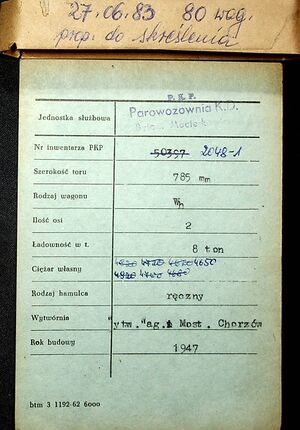 27.06.83 80 wag.
prop. do skreślenia
P. K. P.
Jednostka służbowa Parowozownia K.D.
Nr inwentarza PKP 50397 2048-1
Szerokość toru 785 mm
Rodzaj wagonu Wh
Ilość osi 2
Ładowność w t. 8 ton
Ciężar własny 4650
4820 4700 4680
Rodzaj hamulca ręczny
Wytwórnia "ytw."ag.i Most. Chorzów
Rok budowy 1947
btm 3 1192-62 6000